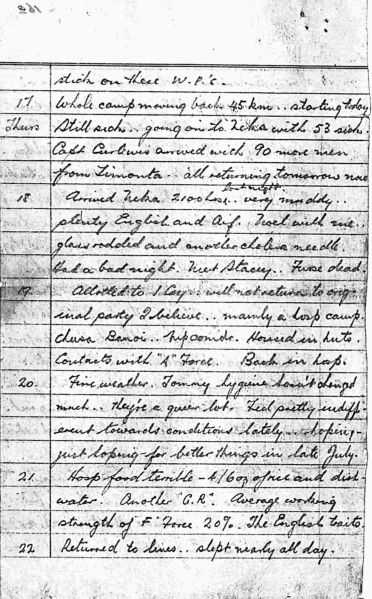 stick on these W.P's.
17 Whole camp moving back 45 km.. starting today
Thurs Still sick.. going on to Neka with 53 sick.
Capt Curlewis arrived with 90 more men
from Timonta.. all returning tomorrow now
last night
18 Arrived Neka 2100 hrs.. very muddy..
plenty English and Aif. Noel with me..
glass rodded and another cholera needle.
Had a bad night. Met Stacey.. Furse dead.
19 Allotted to 1 Coy.. will not return to orig-
inal party I believe.. mainly a hosp camp.
Housed in huts.
Contacts with "A" Force. Back in hosp.
20. Fine weather. Tommy hygiene hasn't changed
much.. they're a queer lot. Feel pretty indiff-
erent towards conditions lately.. hoping-
just hoping- for better things in late July.
21 Hosp food terrible - 4/6 oz of rice and dish-
water. Another "G.R". Average working
strength of "F" Force 20%. The English traits.
22 Returned to lines.. slept nearly all day.